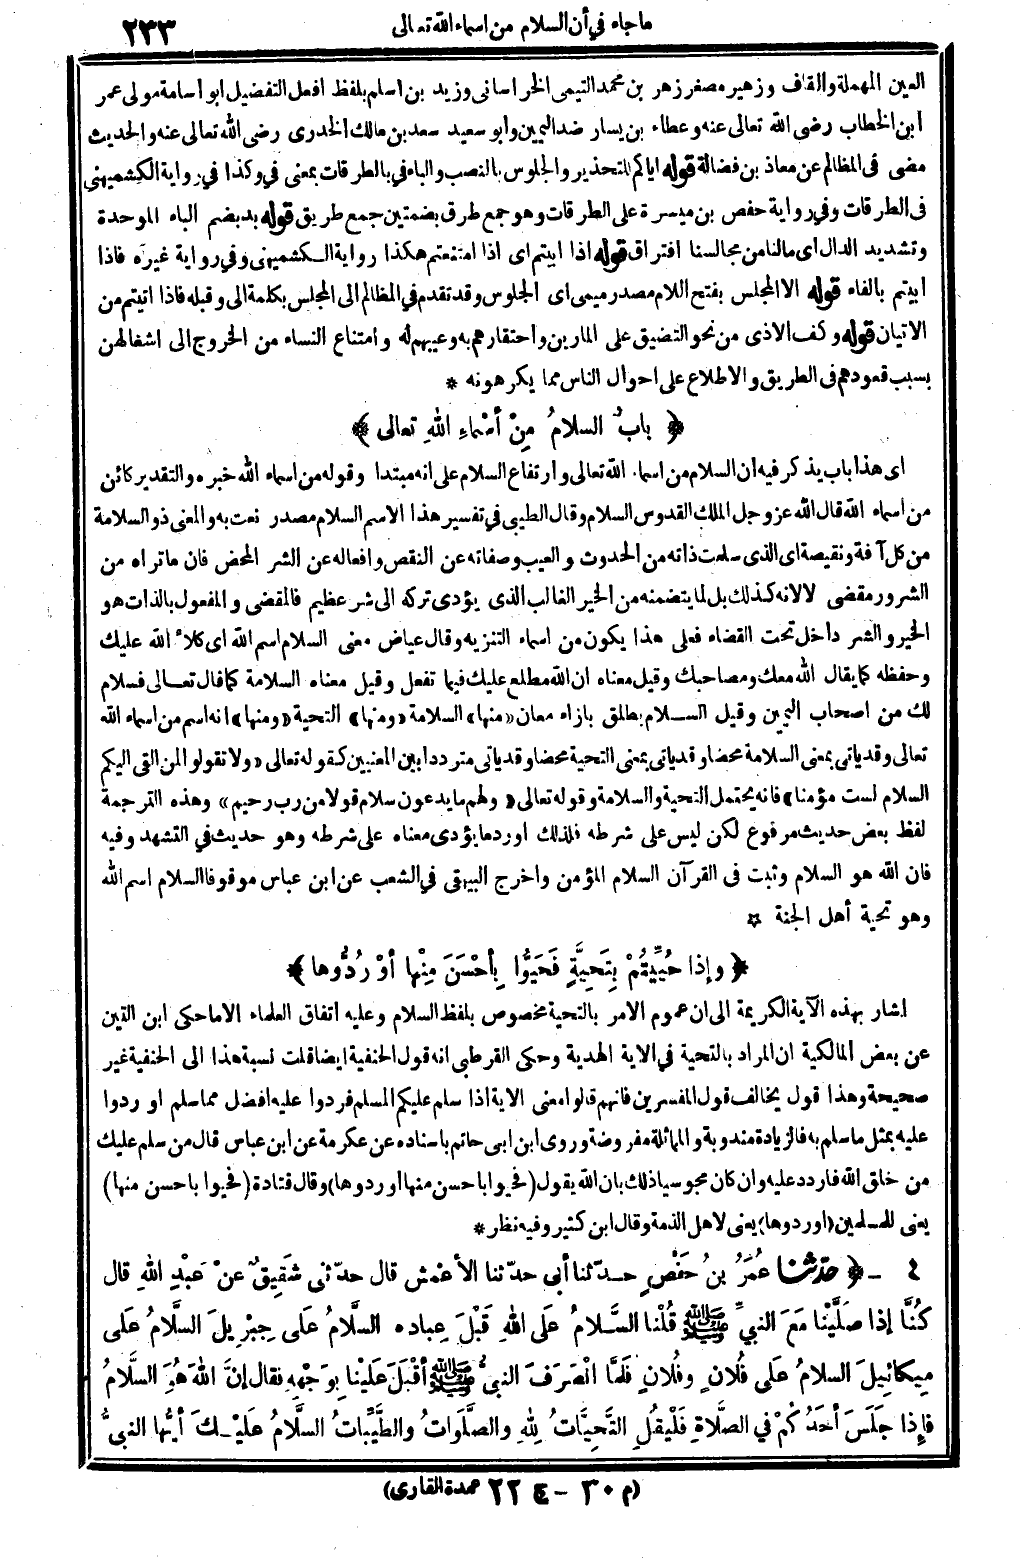 ما جاء في أن السلام من اسماء الله تعالى
٢٣٣
العين المهملة والقاف وزهير مصغر زهر بن محمد التيمى الخراسانى وزيد بن اسلم بلفظ افعل التفضيل ابو اسامة مولى عمر
ابن الخطاب رضى الله تعالى عنه وعطاء بن يسار ضد اليمين وابو سعيد سعد بن مالك الخدرى رضى الله تعالى عنه والحديث
مضى فى المظالم عن معاذ بن فضالة قوله اياكم للتحذير والجلوس بالنصب والباء في بالطرقات بمعنى في وكذا في رواية الكشميهنى
فى الطرقات وفي رواية حفص بن ميسرة على الطرقات وهو جمع طرق بضمتين جمع طريق قوله بد بضم الباء الموحدة
وتشديد الدال اى مالنا من مجالسنا افتراق قوله اذا ابيتم اى اذا امتنعتم هكذا رواية الكشميهنى وفي رواية غيره فاذا
ابيتم بالفاء قوله الا المجلس بفتح اللام مصدر ميمى اى الجلوس وقد تقدم في المظالم الى المجلس بكلمة الى وقبله فاذا اتيتم من
الاتيان قوله وكف الاذى من نحو التضيق على المارين واحتقارهم به وعيبهم له وامتناع النساء من الخروج الى اشغالهن
بسبب قعودهم فى الطريق والاطلاع على احوال الناس مما يكرهونه *
﴿ بابٌ السلامُ مِنْ أسْماءِ اللهِ تعالى ﴾
اى هذا باب يذكر فيه ان السلام من اسماء الله تعالى وارتفاع السلام على انه مبتدا وقوله من اسماء الله خبره والتقدير كائن
من اسماء الله قال الله عز وجل الملك القدوس السلام وقال الطيبى في تفسير هذا الاسم السلام مصدر نعت به والمعنى ذو السلامة
من كل آفة ونقيصة اى الذى سلمت ذاته من الحدوث والعيب وصفاته عن النقص وافعاله عن الشر المحض فان ماتراه من
الشرور مقضى لا لانه كذلك بل لما يتضمنه من الخير الغالب الذى يؤدى تركه الى شر عظيم فالمقضى والمفعول بالذات هو
الخير والشر داخل تحت القضاء فعلى هذا يكون من اسماء التنزيه وقال عياض معنى السلام اسم الله اى كلأ الله عليك
وحفظه كما يقال الله معك ومصاحبك وقيل معناه ان الله مطلع عليك فيما تفعل وقيل معناه السلامة كما قال تعالى فسلام
لك من اصحاب اليمين وقيل السلام يطلق بازاء معان «منها» السلامة «ومنها» التحية «ومنها» انه اسم من اسماء الله
تعالى وقد ياتى بمعنى السلامة محضا وقد ياتى بمعنى التحية محضا وقد ياتى مترددا بين المعنيين كقوله تعالى «ولا تقولوا لمن القى اليكم
السلام لست مؤمنا» فانه يحتمل التحية والسلامة وقوله تعالى «ولهم ما يدعون سلام قولا من رب رحيم» وهذه الترجمة
لفظ بعض حديث مرفوع لكن ليس على شرطه فلذلك اورد ما يؤدى معناه على شرطه وهو حديث في التشهد وفيه
فان الله هو السلام وثبت فى القرآن السلام المؤمن واخرج البيهقى في الشعب عن ابن عباس موقوفا السلام اسم الله
وهو تحية أهل الجنة ☆
﴿ وإذا حُيِّيتُمْ بِتَحِيَّةٍ فَحَيُّوا بِأحْسَنَ مِنْها أوْ رُدُّوها ﴾
اشار بهذه الآية الكريمة الى ان عموم الامر بالتحية مخصوص بلفظ السلام وعليه اتفاق العلماء الا ما حكى ابن التين
عن بعض المالكية ان المراد بالتحية في الاية الهدية وحكى القرطبى انه قول الحنفية ايضا قلت نسبة هذا الى الحنفية غير
صحيحة وهذا قول يخالف قول المفسرين فانهم قالوا معنى الاية اذا سلم عليكم المسلم فردوا عليه افضل مما سلم او ردوا
عليه بمثل ما سلم به فالزيادة مندوبة والمماثلة مفروضة وروى ابن ابى حاتم باسناده عن عكرمة عن ابن عباس قال من سلم عليك
من خلق الله فاردد عليه وان كان مجوسيا ذلك بان الله يقول (فحيوا باحسن منها او ردوها) وقال قتادة (فحيوا باحسن منها)
يعنى للمسلمين (او ردوها) يعنى لاهل الذمة وقال ابن كثير وفيه نظر *
٤ - ﴿ حدثنا عُمَرُ بنُ حَفْصٍ حدّثنا أبى حدّثنا الأعْمش قال حدّثنى شَقِيقٌ عنْ عَبْدِ اللهِ قال
كُنَّا إذا صَلَّيْنا مَعَ النبيِّ ﷺ قُلْنا السَّلامُ عَلى اللهِ قَبْلَ عِباده السَّلامُ عَلى جِبْرِيلَ السَّلامُ عَلى
مِيكائِيلَ السلامُ عَلى فُلانٍ وفُلانٍ فَلمَّا انْصَرَفَ النبىُّ ﷺ أقْبَلَ عَلَيْنا بِوَجْهِهِ فقال إنَّ اللهَ هُوَ السَّلامُ
فإِذا جَلَسَ أحَدُكُمْ في الصَّلاةِ فَلْيقُلِ التَّحِيَّاتُ لِلهِ والصَّلَواتُ والطَّيِّباتُ السَّلامُ عَليْكَ أيُّها النبىُّ
(م ٣٠ - ٢٢٤ عمدة القارى)